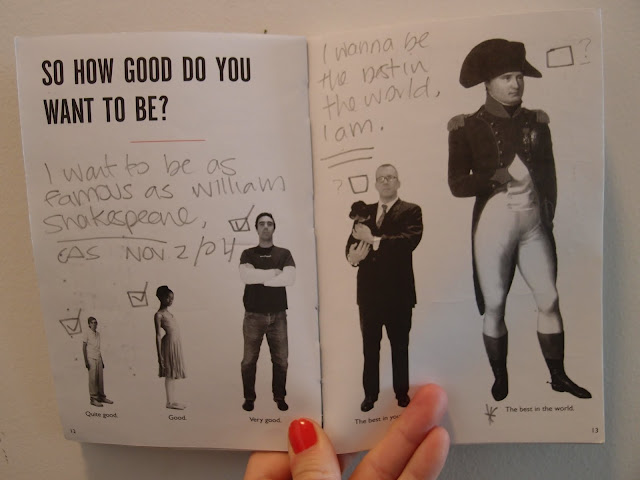 SO HOW GOOD DO YOU
WANT TO BE?
I want to be as
famous as william
shakespeare,
EAS NOV. 2/04
Quite good.
Good.
Very good.
12
I wanna be
the best in
the world,
I am.
?
?
The best in
The best in the world.
13